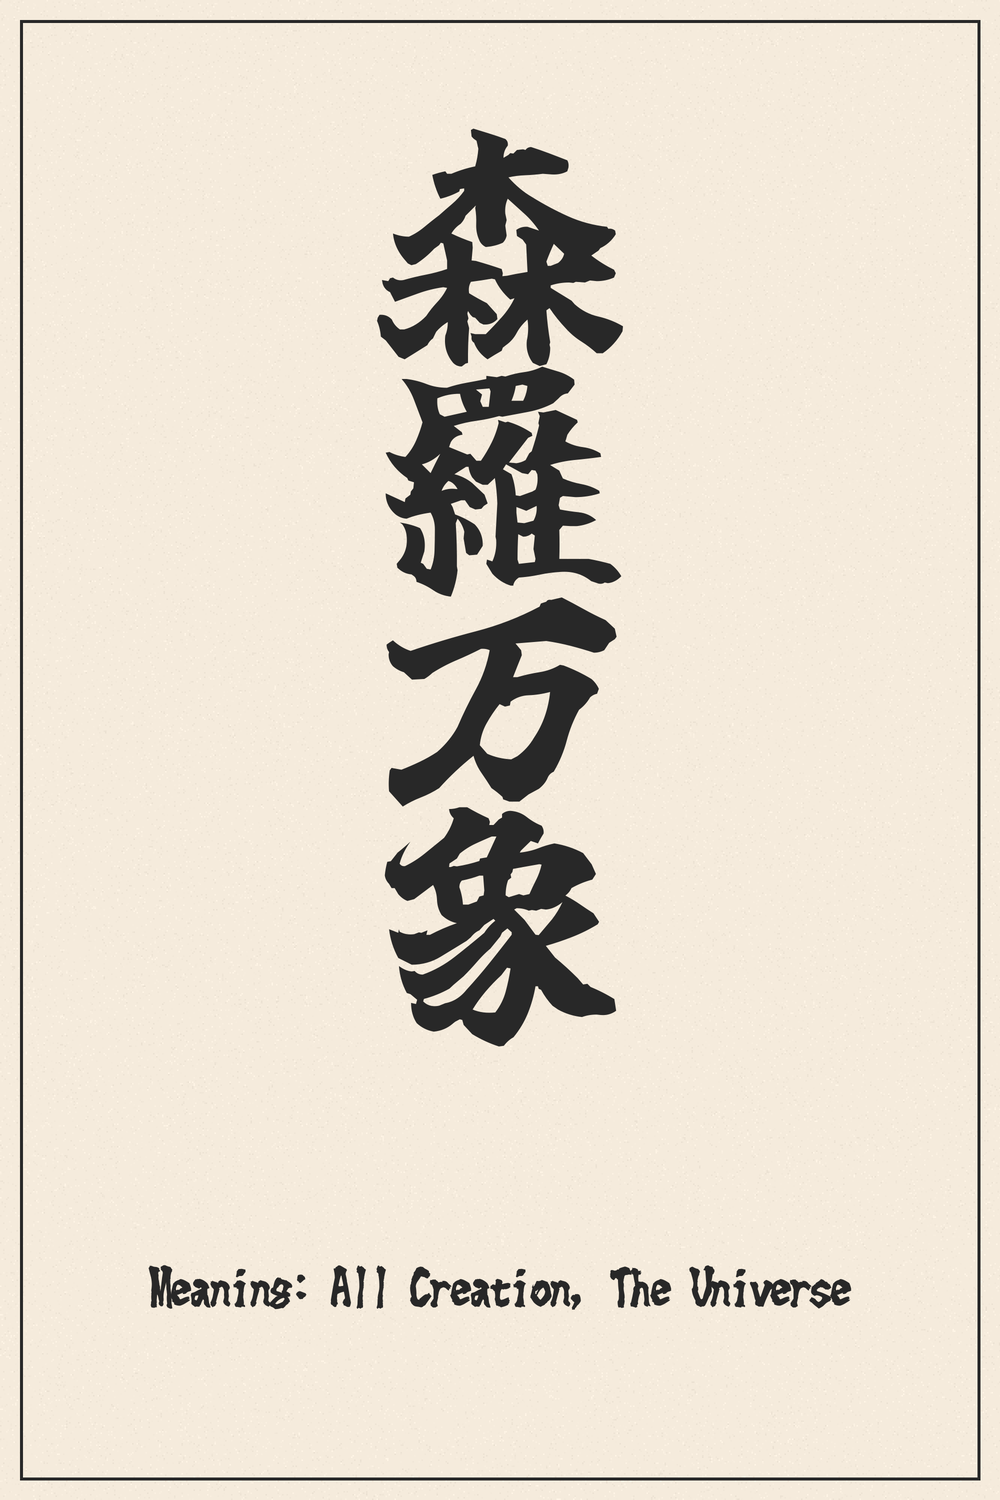 森羅万象
Meaning: All Creation, The Universe